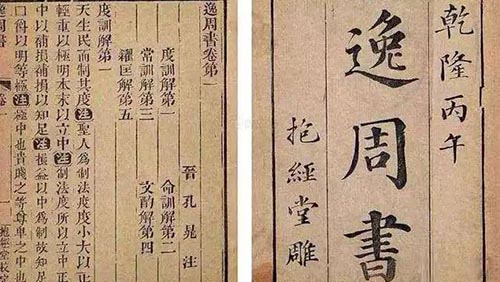 乾隆丙午
逸周書
抱經堂雕
逸周書卷第一
晉孔晁注
度訓解第一 命訓解第二
常訓解第三 文酌解第四
糴匡解第五
度訓解第一
天生民而制其度注聖人爲制法度度小大以正
輕重以極明本末以立中注制法度所以立中正
中以補損補損以知足注損益以中爲制故知足
口爵以明等極注極中也貴賤之等尊卑之中也